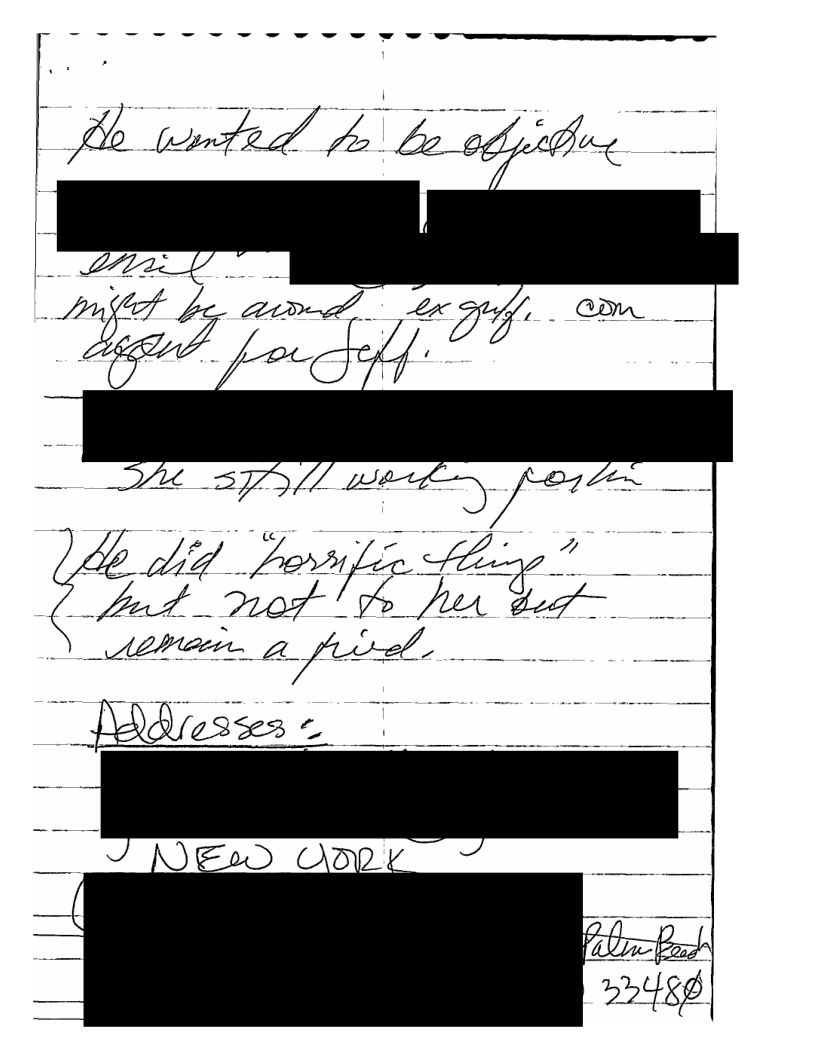 He wanted to be objective
email
might be around, ex
agent for Jeff.
She still working
He did "horrific thing"
but not to her but
remain a
Addresses:
NEW YORK
Palm Beach
33480